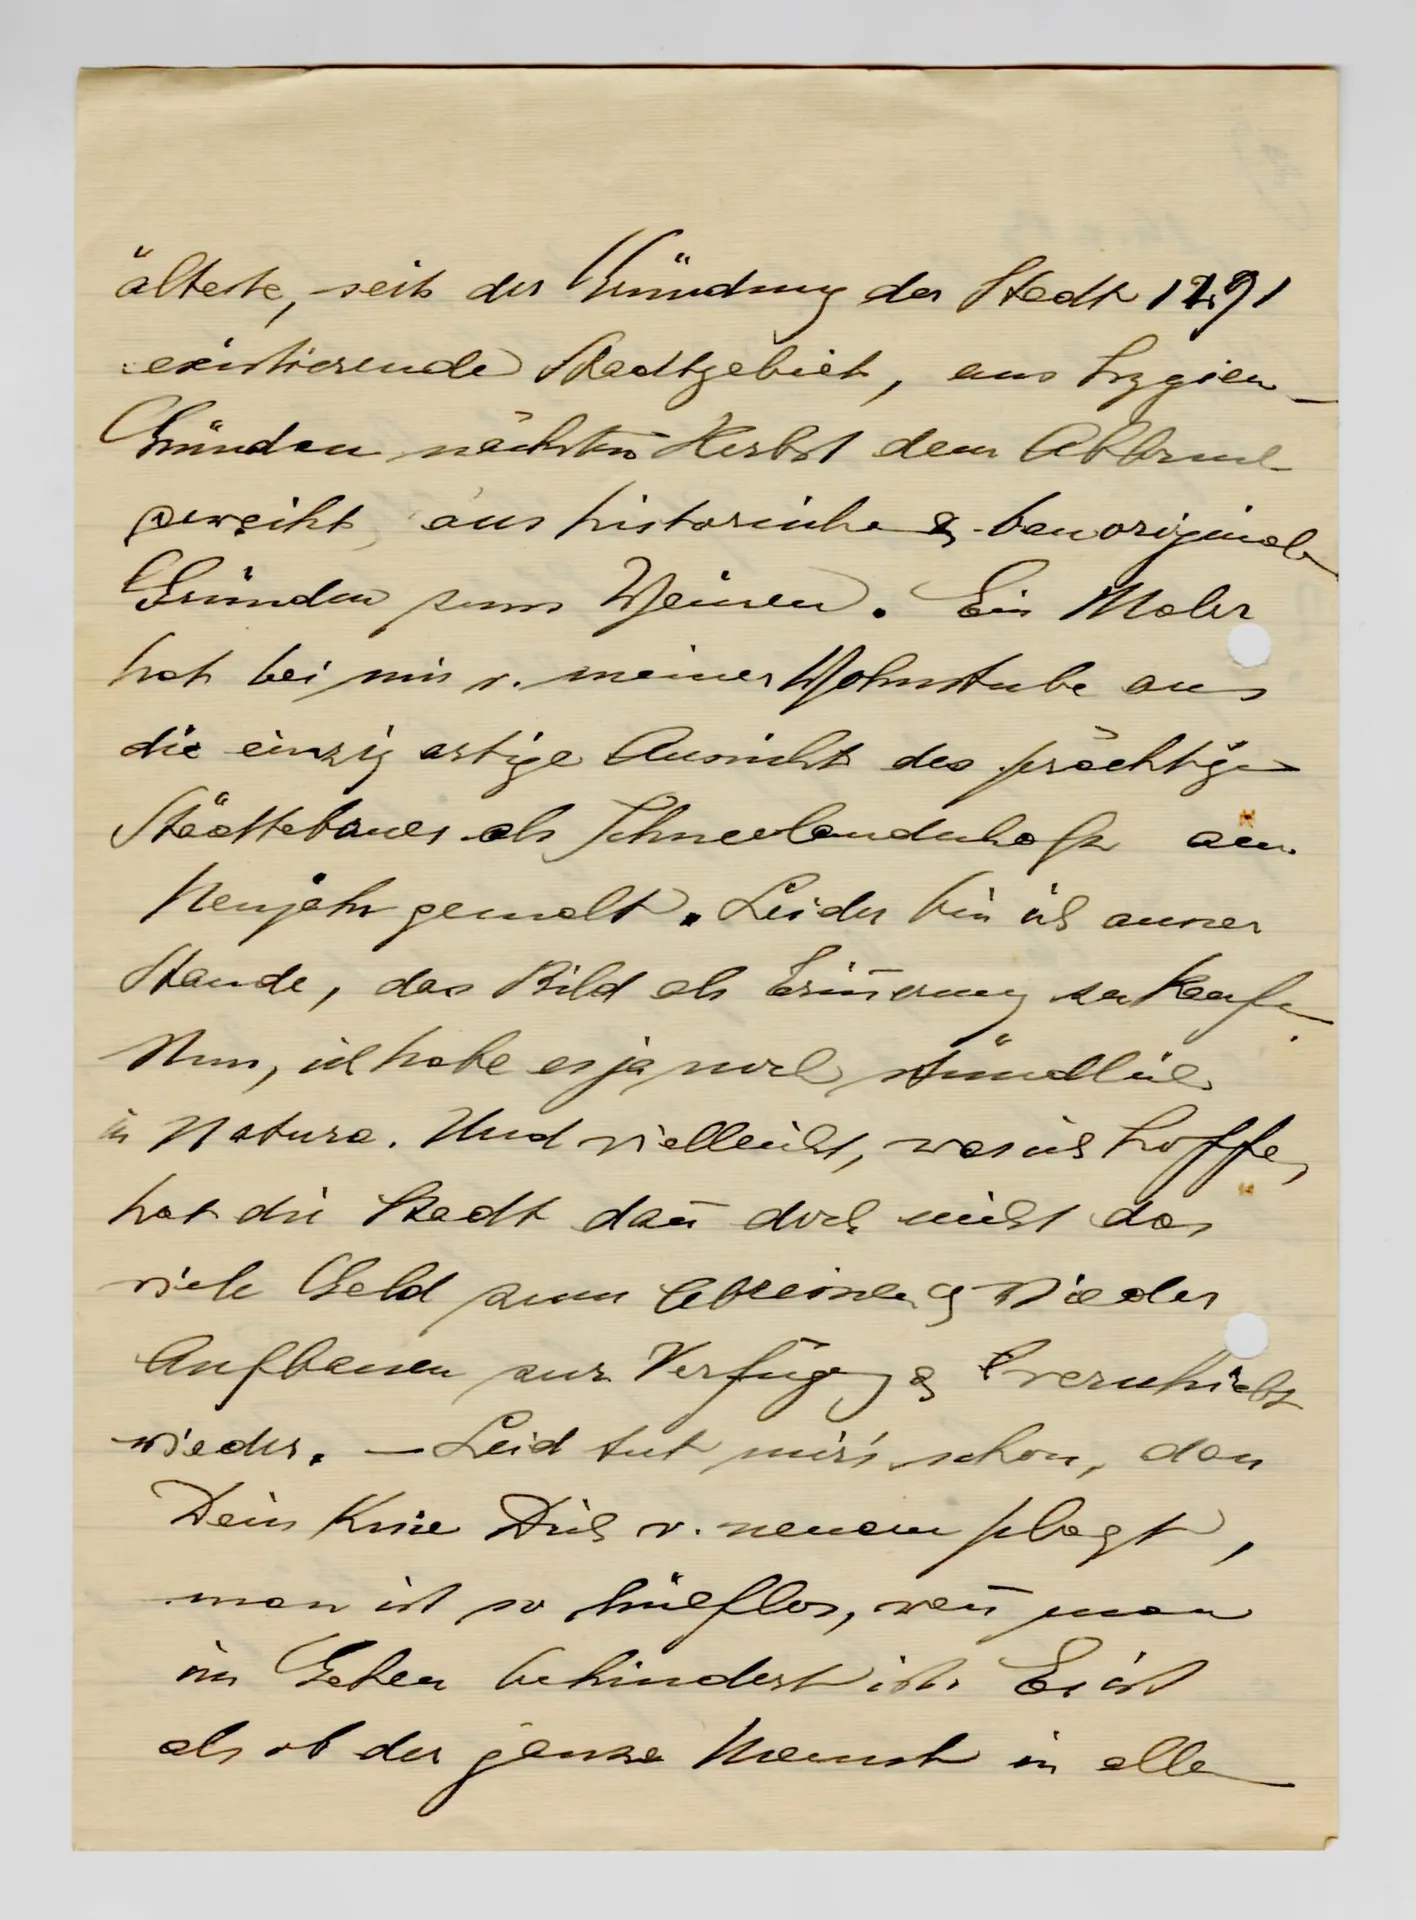 älteste, seit der Gründung der Stadt 1291
existierende Stadtgebiet, aus hygien
Gründen nächsten Herbst dem Abbruch
geweiht, aus historische & bauoriginale
Gründen zum Weinen. Ein Maler
hat bei mir v. meiner Wohnstube aus
die einzig artige Aussicht des prächtigen
Städtebaues als Schneelandschaft am
Neujahr gemalt. Leider bin ich ausser
Stande, das Bild als Erin̄erung zu kaufen.
Nun, ich habe es ja noch stündlich
in Natura. Und vielleicht, was ich hoffe,
hat die Stadt dan̄ doch nicht das
viele Geld zum Abreissen & Wieder
Aufbauen zur Verfügung & verschiebt
wieder. — Leid tut mir's schon, dass
Dein Knie Dich v. neuem plagt,
man ist so hülflos, wen̄ man
im Gehen behindert ist. Es ist
als ob der ganze Mensch in allen